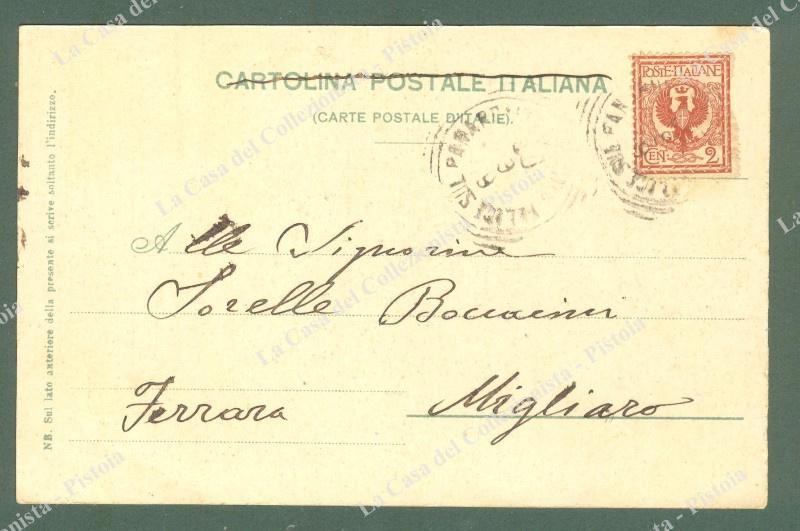 CARTOLINA POSTALE ITALIANA
(CARTE POSTALE D'ITALIE).
POSTE·ITALIANE
CEN. 2
SUL PANARO
Alle Signorine
Sorelle Boccacini
Ferrara
Migliaro
NB. Sul lato anteriore della presente si scrive soltanto l'indirizzo.
La Casa del Collezionista - Pistoia